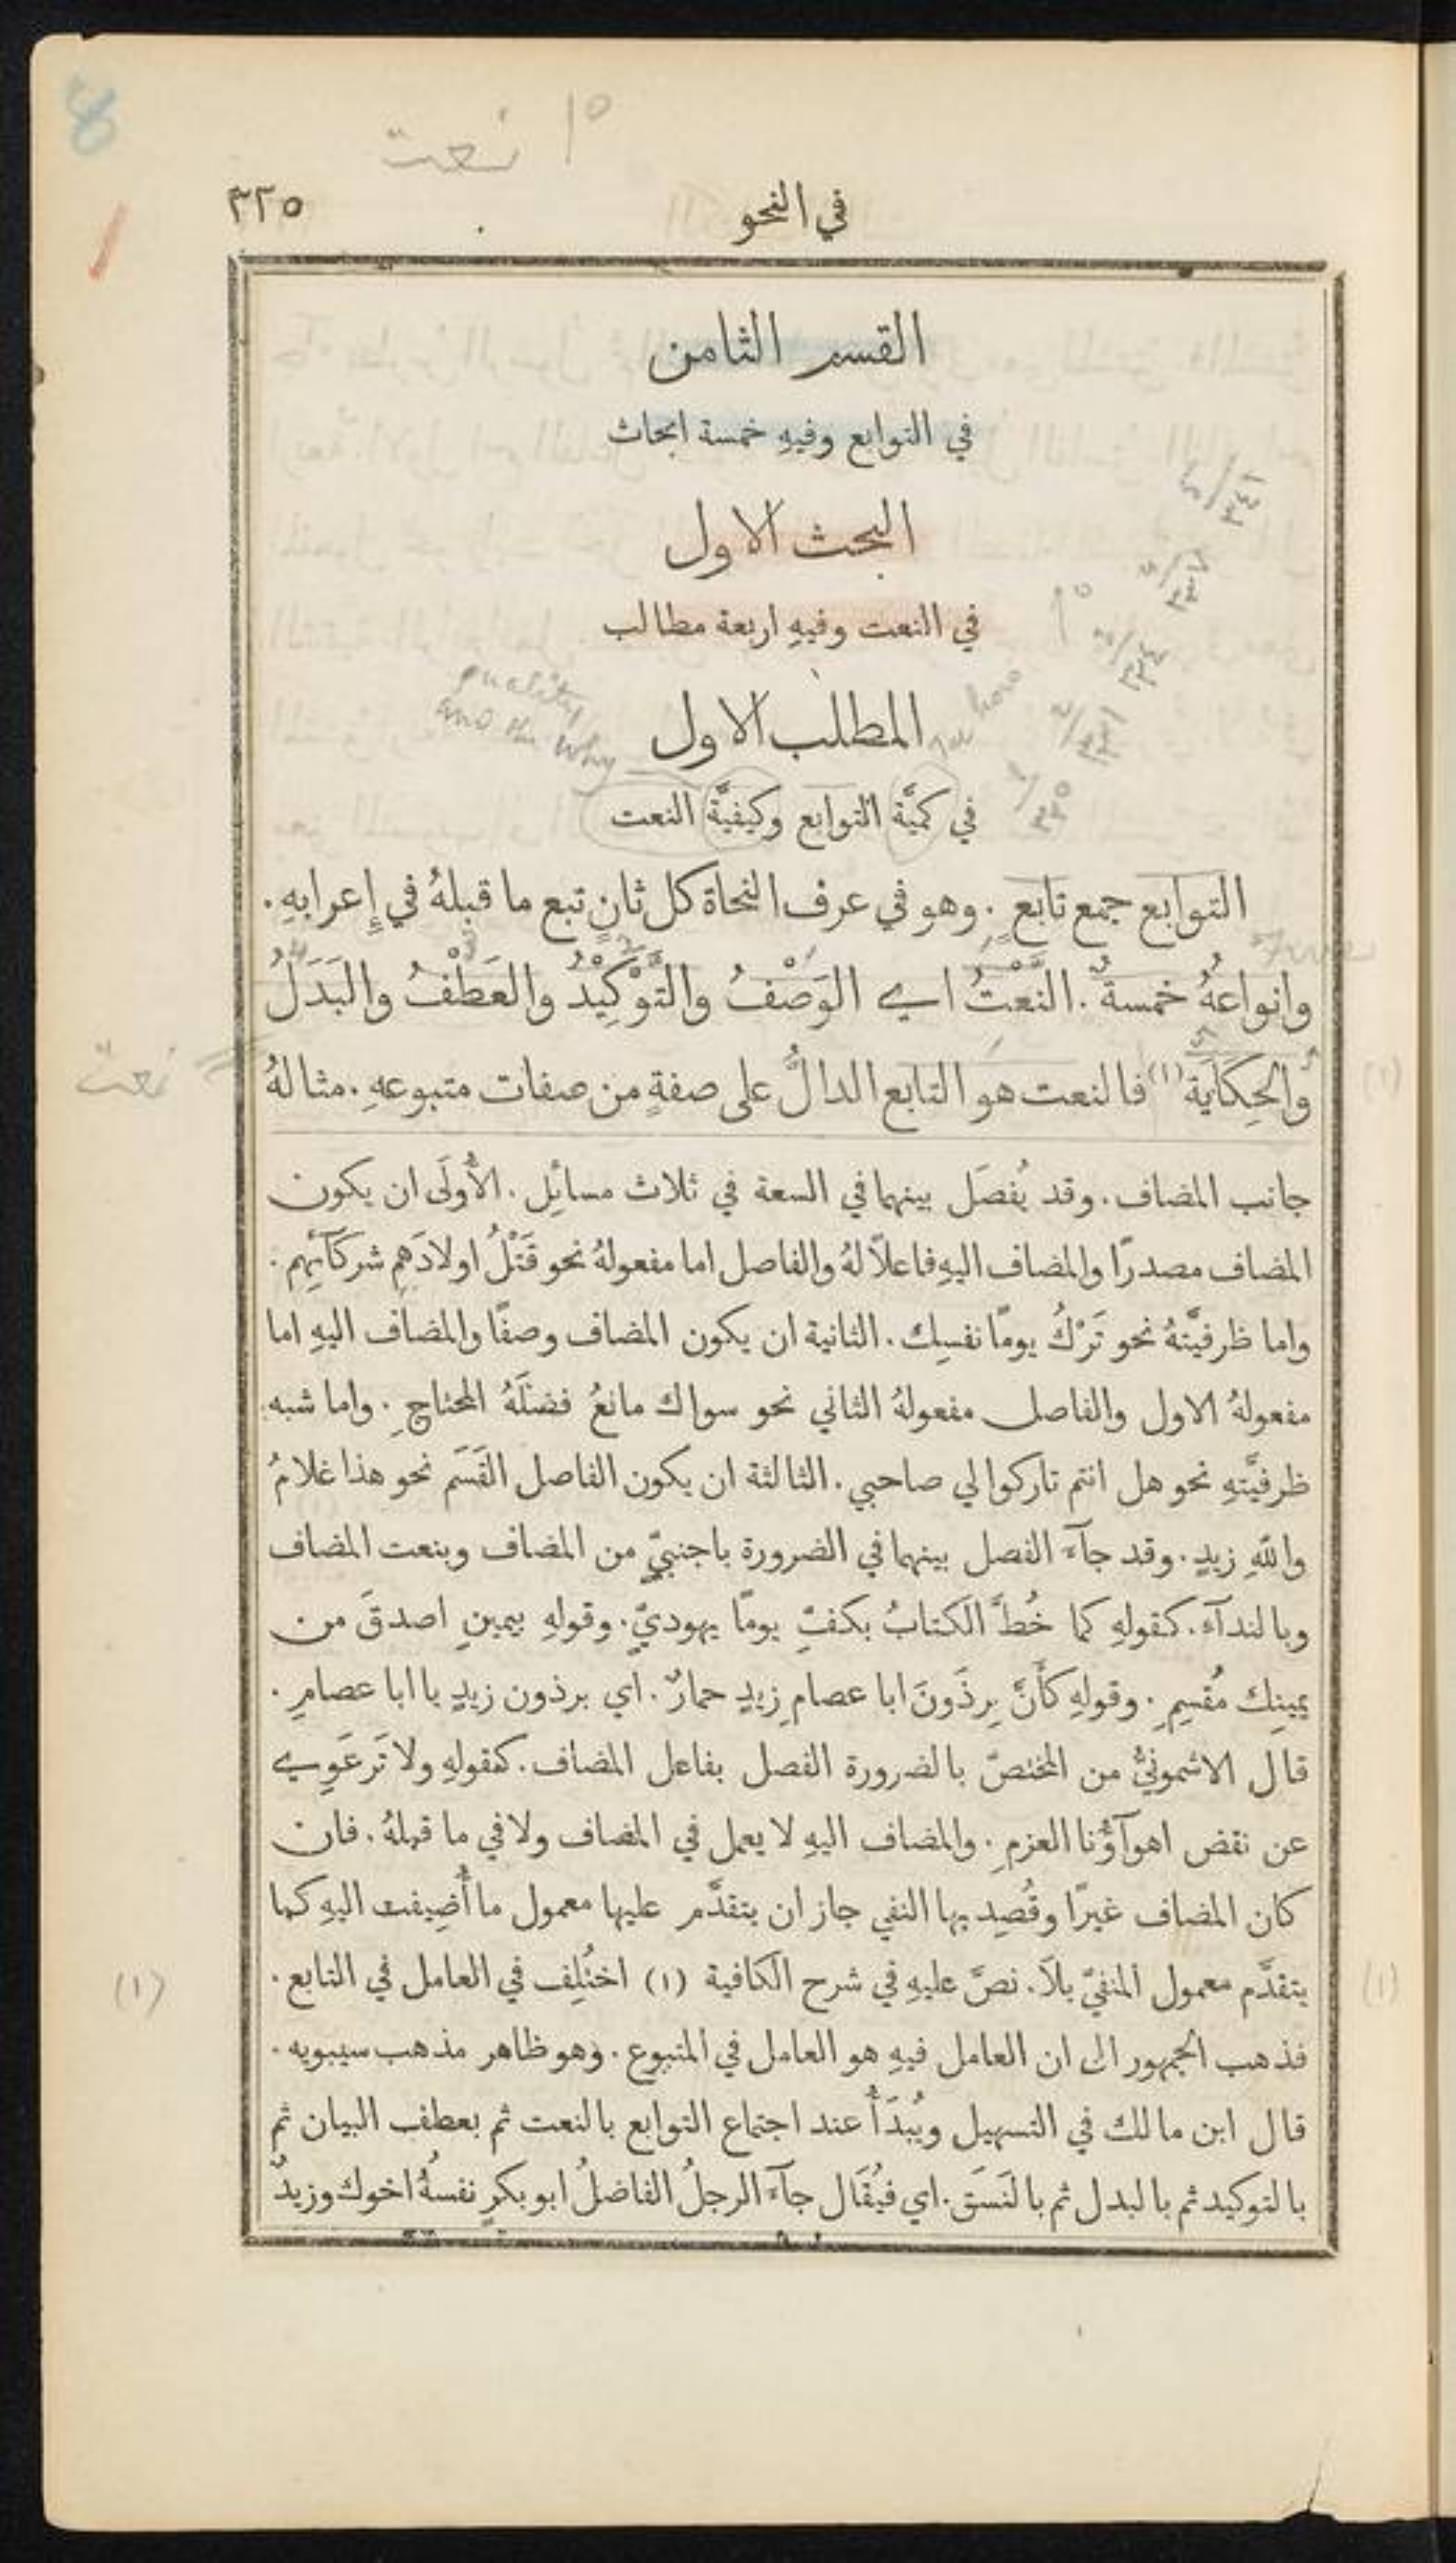 ١٥ نعت
في النحو ٣٢٥
القسم الثامن
في التوابع وفيهِ خمسة ابحاث
البحث الاول
في النعت وفيهِ اربعة مطالب
quality
and the why
the how
المطلب الاول
في كميَّة التوابع وكيفيَّة النعت
التوابع جمع تابعٍ. وهو في عرف النحاة كل ثانٍ تبع ما قبلهُ في إِعرابهِ.
وانواعهُ خمسةٌ. النَّعْتُ اي الوَصْفُ والتَّوْكِيْدُ والعَطْفُ والبَدَلُ
والحِكَايَة (١) فالنعت هو التابع الدالُّ على صفةٍ من صفات متبوعهِ. مثالهُ
نعت
جانب المضاف. وقد يُفصَل بينهما في السعة في ثلاث مسائِل. الأُولَى ان يكون
المضاف مصدرًا والمضاف اليهِ فاعلاً لهُ والفاصل اما مفعولهُ نحو قَتْلُ اولادَهم شركآئِهم.
واما ظرفيَّتهُ نحو تَرْكُ يومًا نفسِك. الثانية ان يكون المضاف وصفًا والمضاف اليهِ اما
مفعولهُ الاول والفاصل مفعولهُ الثاني نحو سواك مانعُ فضلَهُ المحتاجِ. واما شبه
ظرفيَّتهِ نحو هل انتم تاركوا لي صاحبي. الثالثة ان يكون الفاصل القَسَم نحو هذا غلامُ
واللهِ زيدٍ. وقد جآءَ الفصل بينهما في الضرورة باجنبيٍّ من المضاف وبنعت المضاف
وبالندآء. كقولهِ كما خُطَّ الكتابُ بكفِّ يومًا يهوديٍّ. وقولهِ بيمينِ اصدقَ من
يمينِك مُقسِمِ. وقولهِ كأَنَّ بِرذَونَ ابا عصامِ زيدٍ حمارٌ. اي برذون زيدٍ يا ابا عصامٍ.
قال الاشمونيُّ من المختصّ بالضرورة الفصل بفاعل المضاف. كقولهِ ولا تَرعَوِي
عن نقض اهوآؤُنا العزمِ. والمضاف اليهِ لا يعمل في المضاف ولا في ما قبلهُ. فان
كان المضاف غيرًا وقُصِد بها النفي جاز ان يتقدَّم عليها معمول ما أُضِيفت اليهِ كما
يتقدَّم معمول المنفيّ بلاَ. نصَّ عليهِ في شرح الكافية (١) اختُلِف في العامل في التابع.
(١)
فذهب الجمهور الى ان العامل فيهِ هو العامل في المتبوع. وهو ظاهر مذهب سيبويه.
قال ابن مالك في التسهيل ويُبدَأُ عند اجتماع التوابع بالنعت ثم بعطف البيان ثم
بالتوكيد ثم بالبدل ثم بالنَسَق. اي فيُقَال جآءَ الرجلُ الفاضلُ ابو بكرٍ نفسُهُ اخوك وزيدٌ